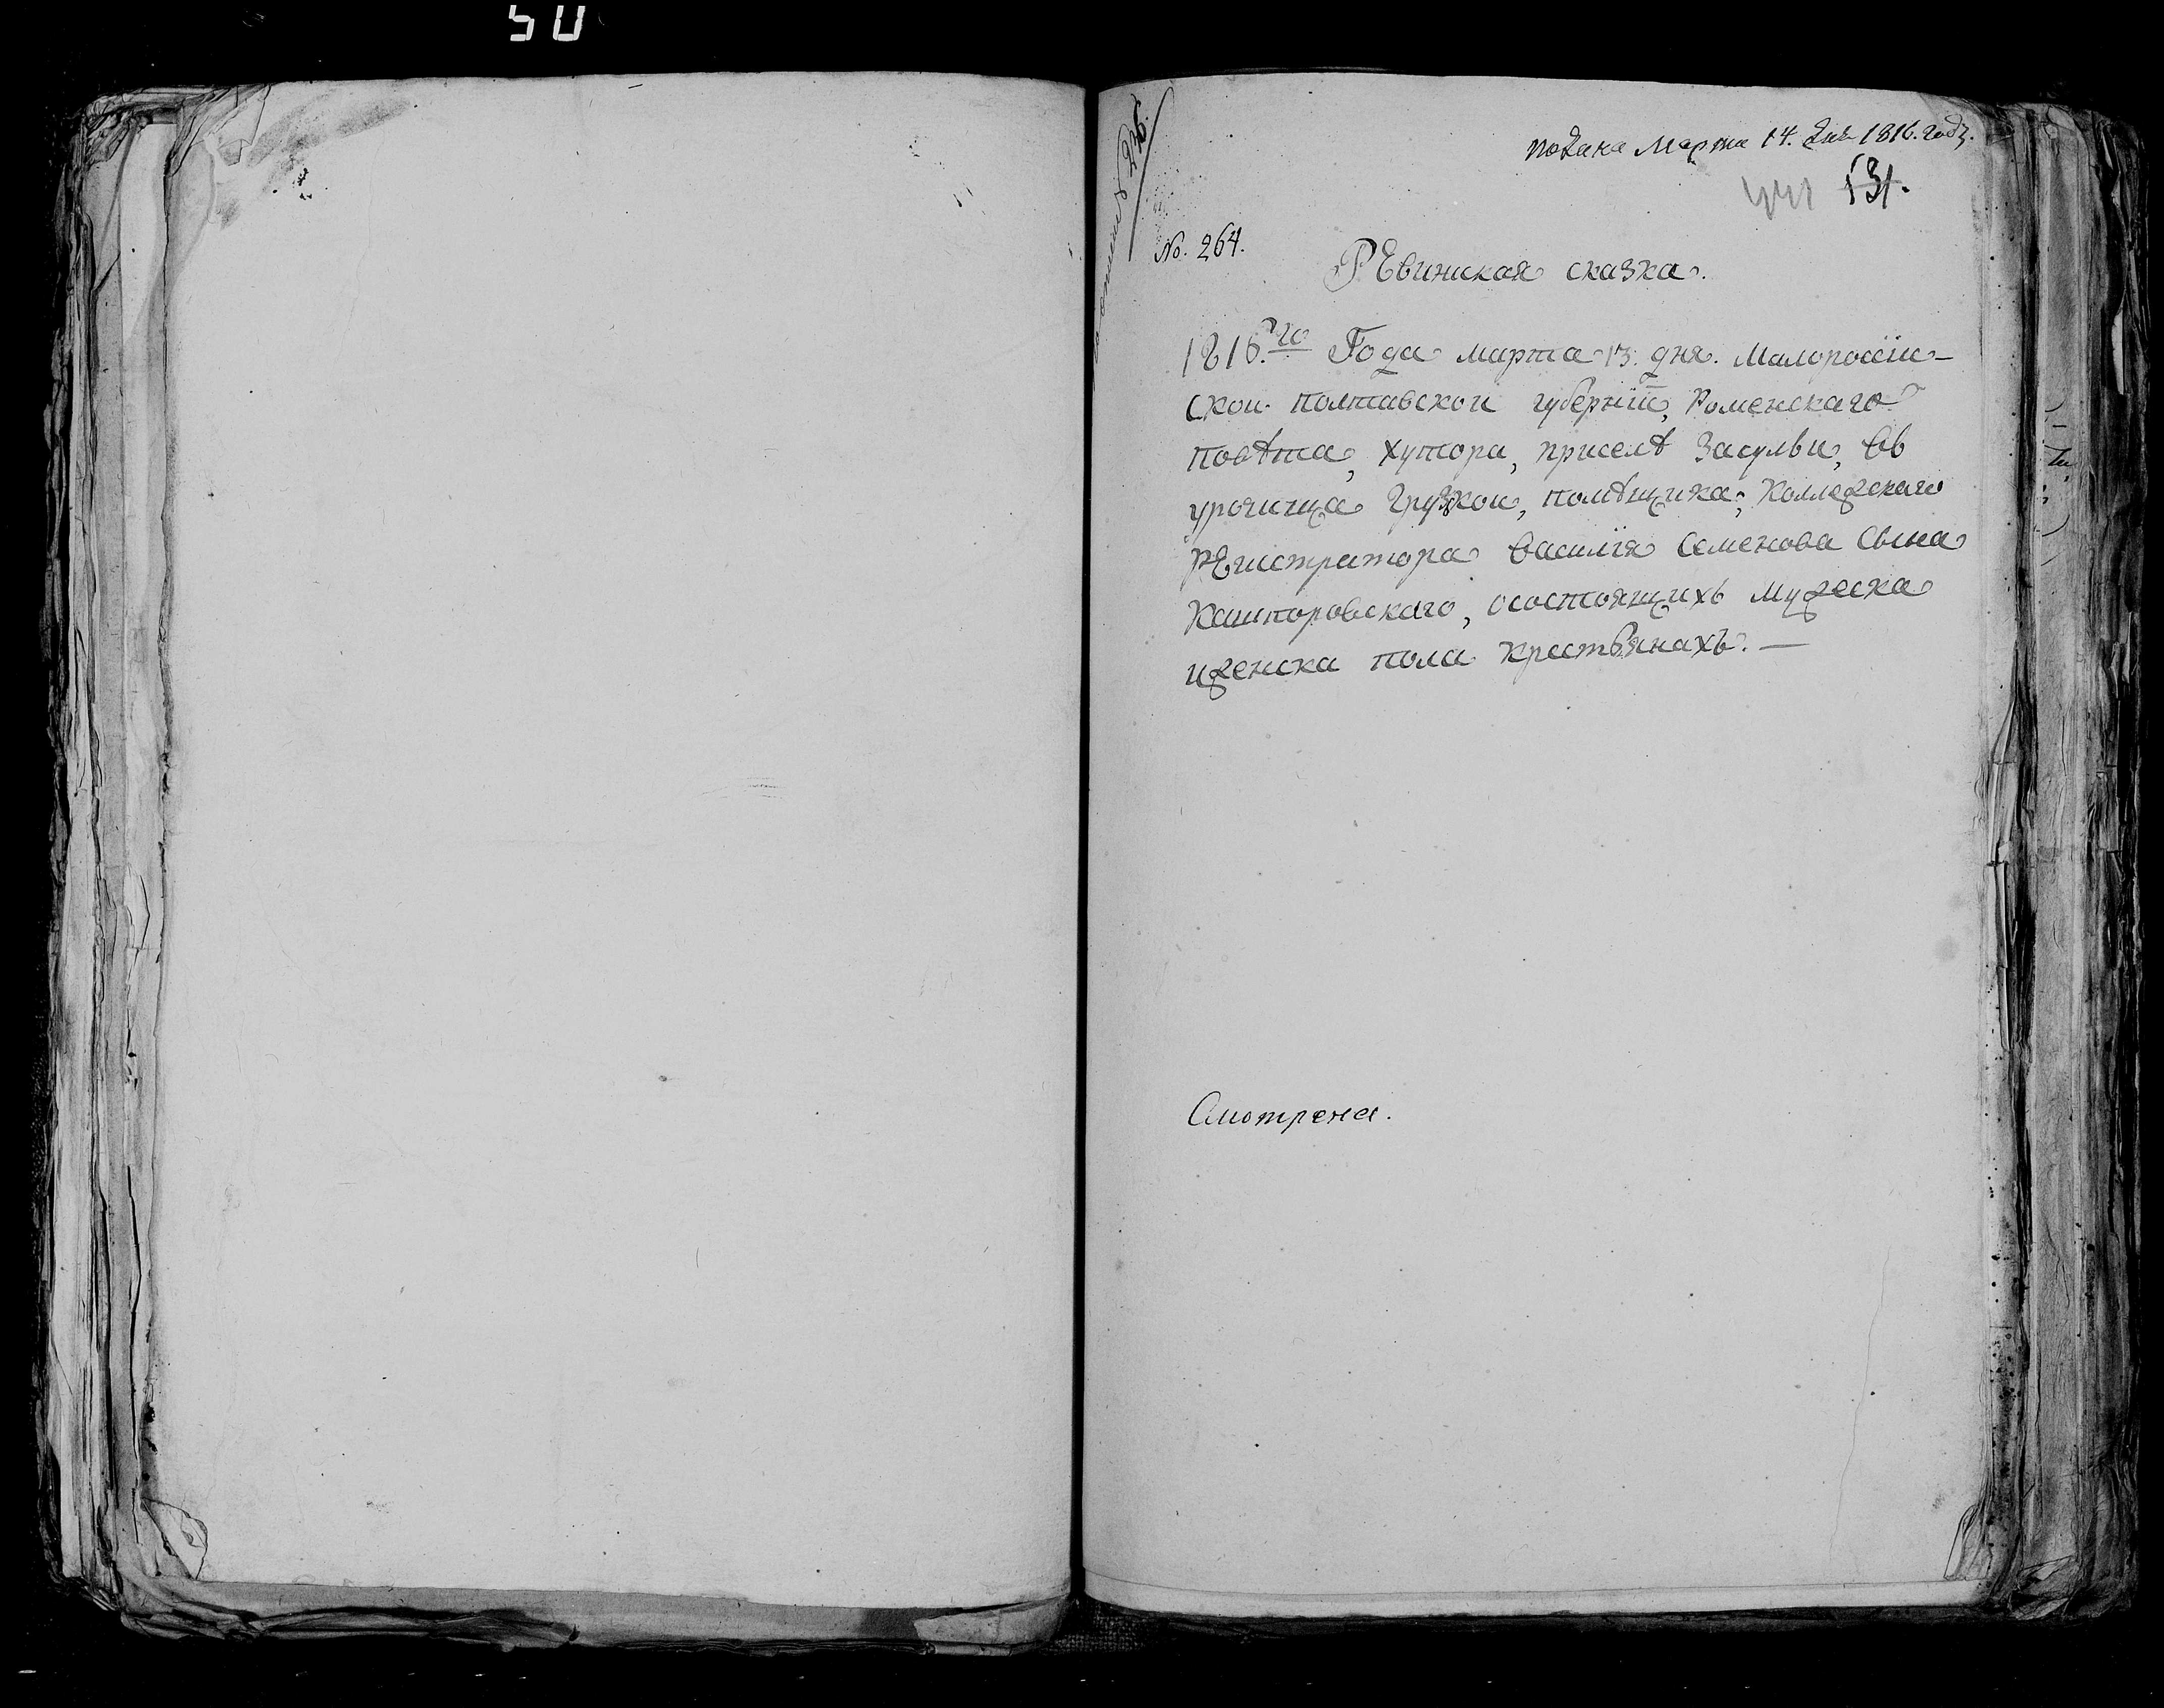 50
подана Марта 14. дня 1816. году.
131.
No. 264.
РЕвижская сказка.
1816.го Года марта 13. дня. Малоросїи-
скои полтавскои губернїи, Роменскаго
повѣта, хутора, приселѣ Засульи, въ
урочища Грузкои, помѣщика, Коллежскаго
РЕгистратора Василїя Семенова Сына
Кашпоровскаго, осостоящихъ мужеска
иженска пола крестьянахъ. —
Смотрена.